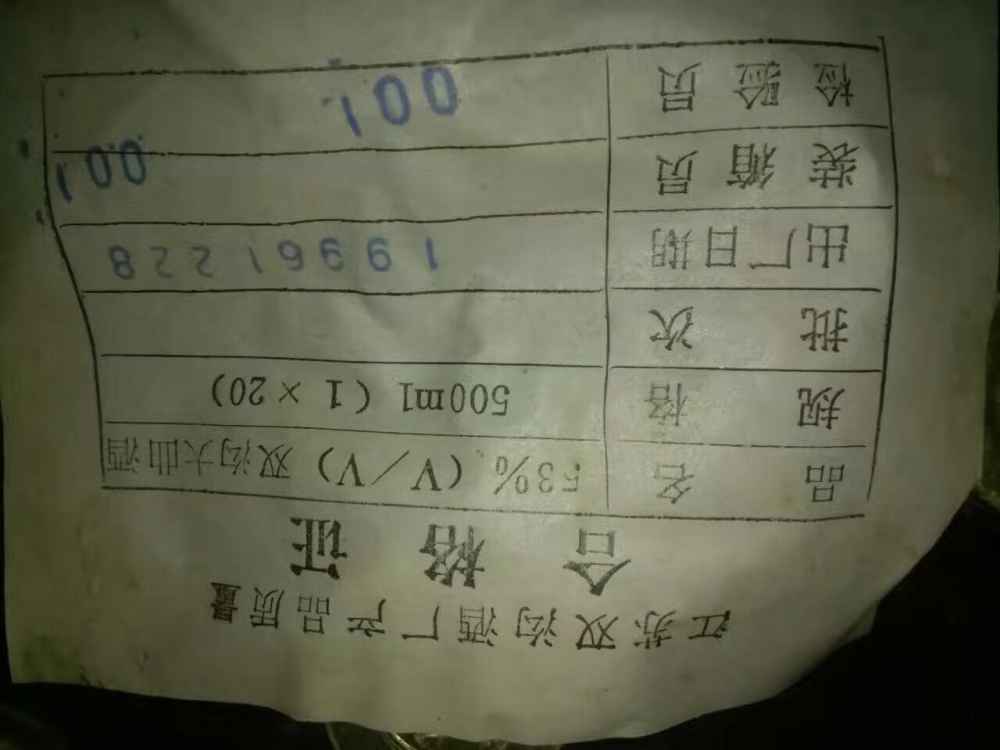 江苏双沟酒厂产品质量
合格证
品名 53% (V/V) 双沟大曲酒
规格 500ml (1×20)
批次
出厂日期 19961228
装箱员 001
检验员 001